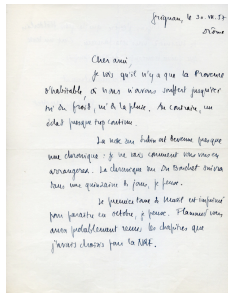 Grignan, le 30.VII.57
Drôme
Cher ami,
Je vois qu'il n'y a que la Provence
d'habitable, où nous n'avons souffert jusqu'ici
ni du froid, ni de la pluie. Au contraire, un
éclat presque trop continu.
La note sur est devenue presque
une chronique : je ne sais comment vous vous en
arrangerez. La chronique sur Du Bouchet suivra
dans une quinzaine de jours, je pense.
Le premier tome de Musil est imprimé
pour paraître en octobre, je pense. Flammarion vous
aura probablement remis les chapitres que
j'avais choisis pour la NRF.